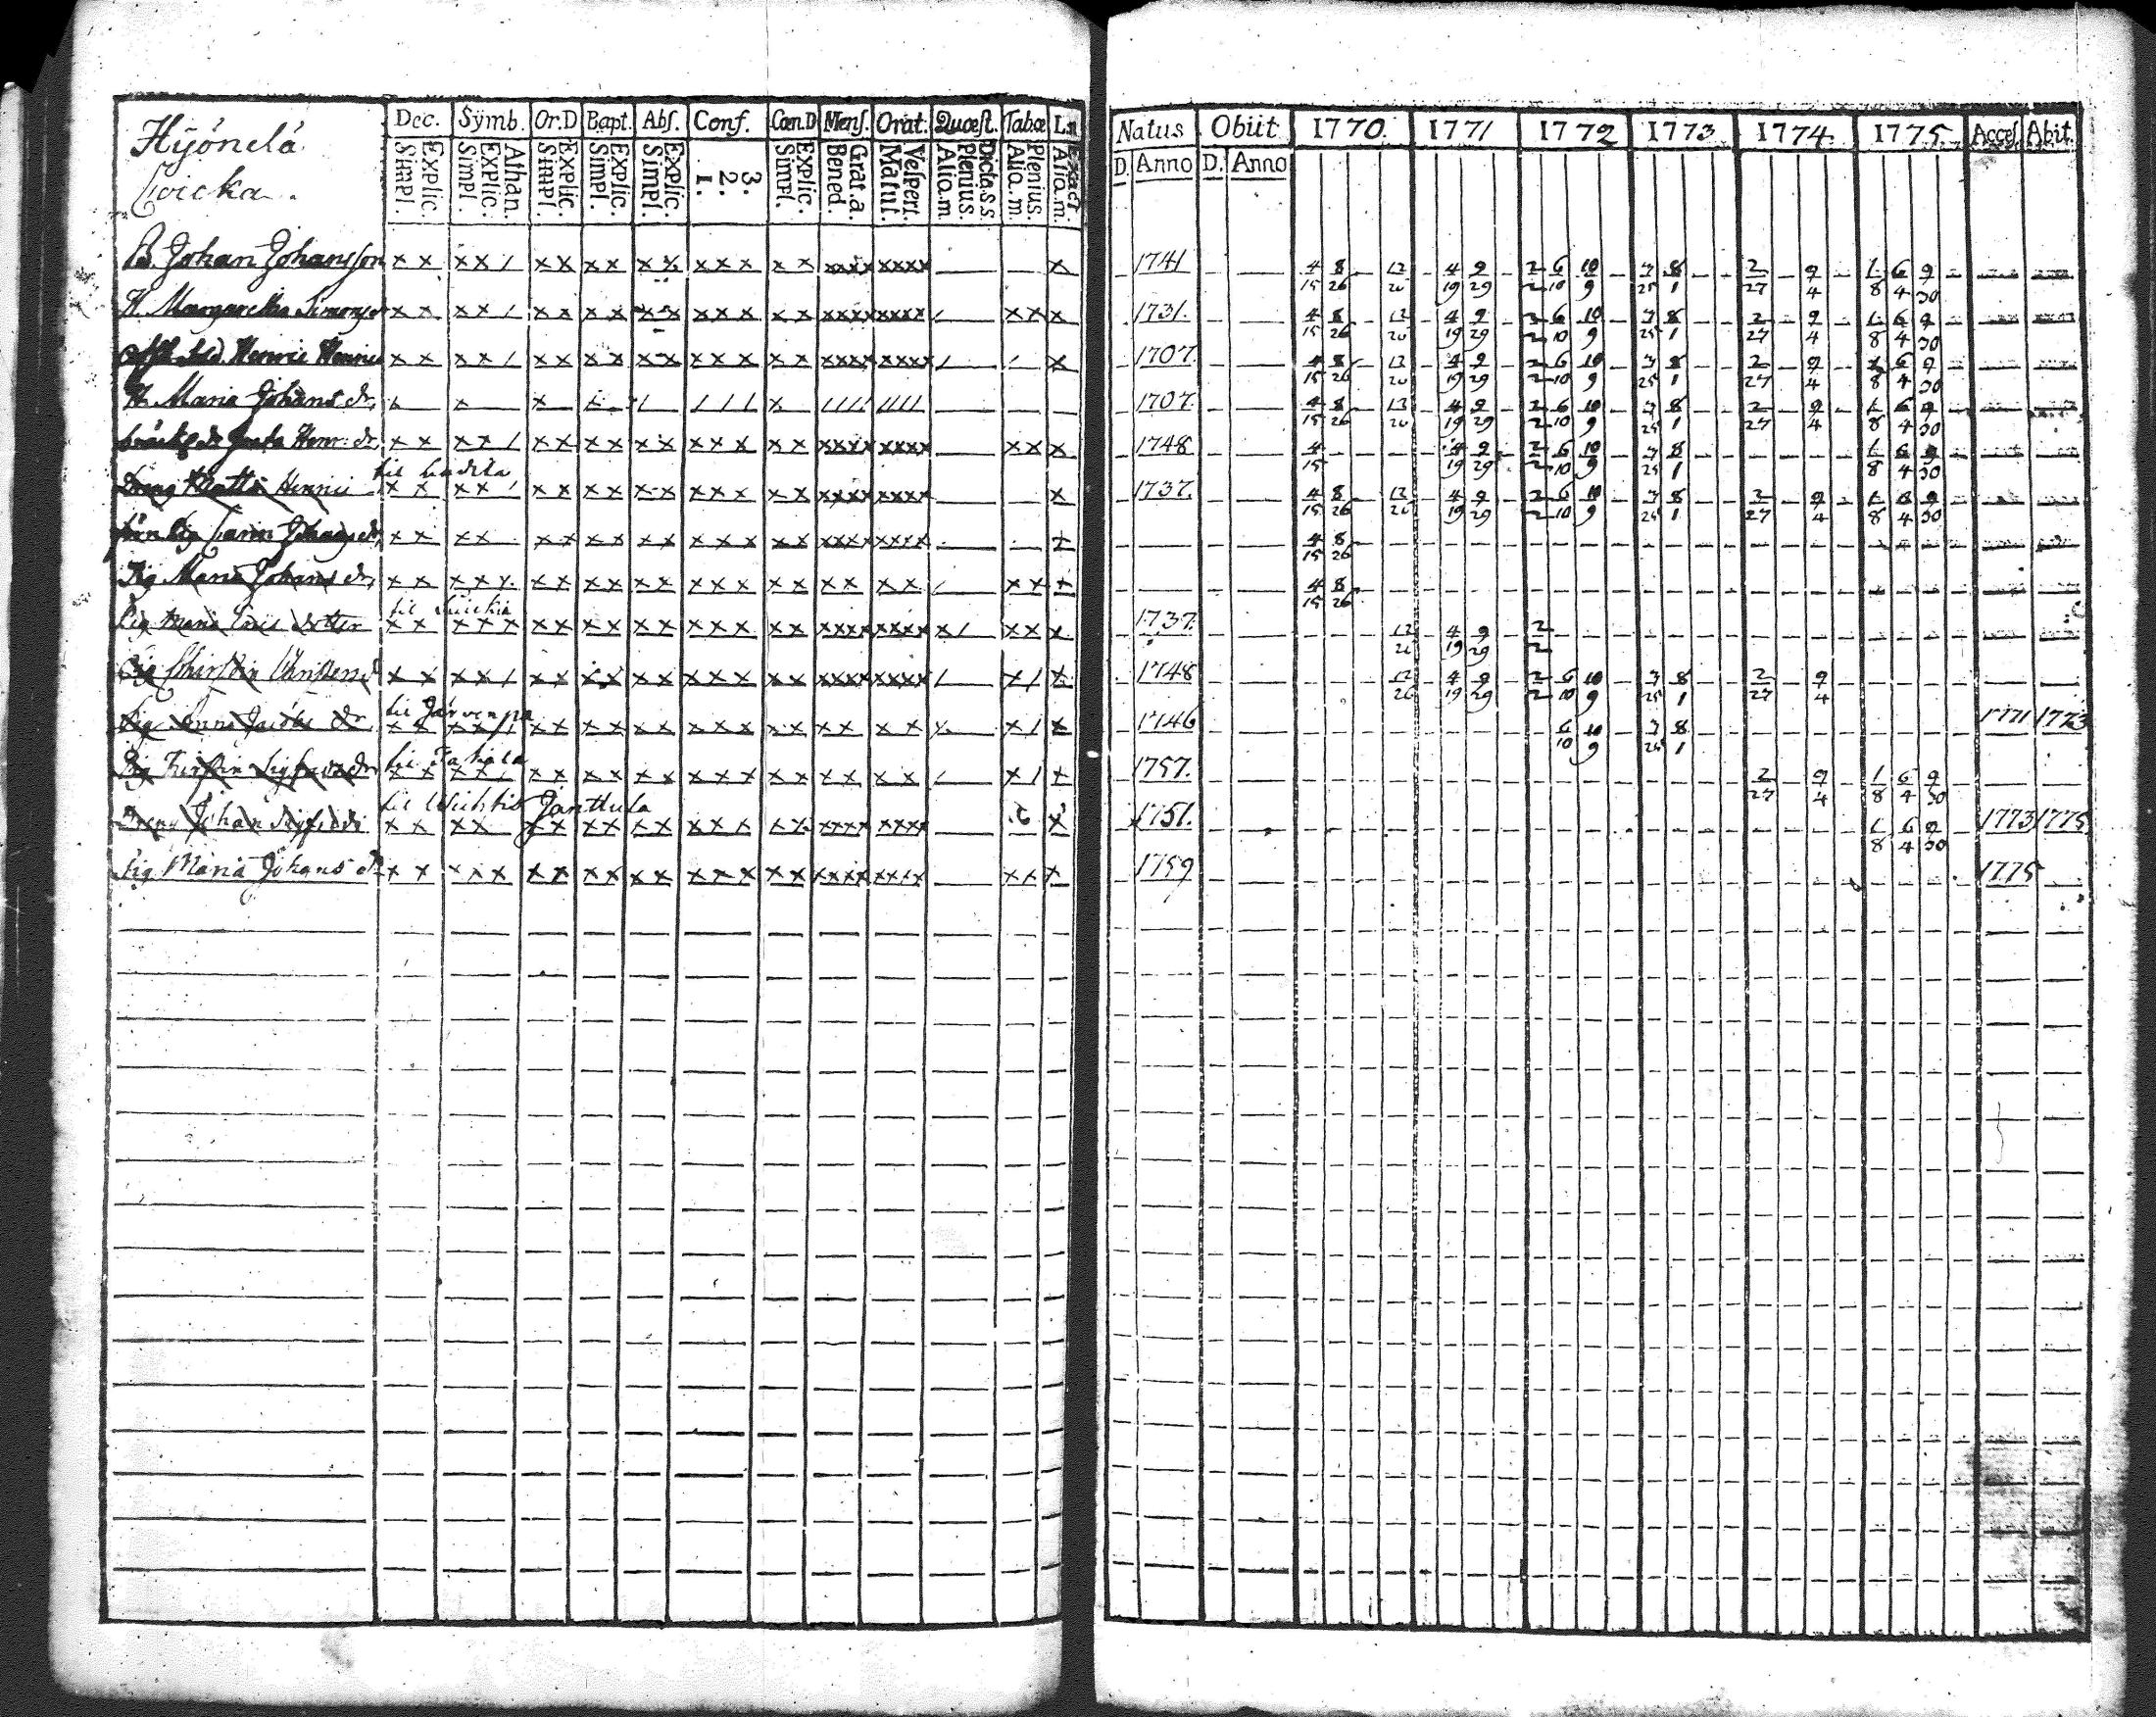 Hÿönelä
Cvicka.
Dec. Sÿmb. Or.D Bapt. Abſ. Conf. Cœn.D Menſ. Orat. Quæſt. Tabæ
Simpl. Explic. Simpl. Explic. Athan. Simpl. Explic. Simpl. Explic. Simpl. Explic. 1. 2. 3. Simpl. Explic. Bened. Grat.a. Matut. Veſpert. Alio.m. Plenius. Dicta.s.s. Alio.m. Plenius. Alio.m. Exact.
Natus Obiit 1770. 1771 1772 1773 1774. 1775. Acceſ. Abit.
D. Anno D. Anno
B. Johan Johansſon x x x x / x x x x x x x x x x x xxxx xxxx x 1741 4/15 8/26 12/20 4/19 9/29 2/2 6/10 10/9 7/25 8/1 2/27 9/4 1/8 6/4 9/30
H. Margaretha Simons x x x x / x x x x x x x x x x x xxxx xxxx / x x x 1731. 4/15 8/26 12/20 4/19 9/29 2/2 6/10 10/9 7/25 8/1 2/27 9/4 1/8 6/4 9/30
Henric Henrics x x x x / x x x x x x x x x x x xxxx xxxx / / x 1707. 4/15 8/26 12/20 4/19 9/29 2/2 6/10 10/9 7/25 8/1 2/27 9/4 1/8 6/4 9/30
H. Maria Johans dr. x x x x / / / / x //// //// 1707. 4/15 8/26 13/20 4/19 9/29 2/2 6/10 10/9 7/25 8/1 2/27 9/4 1/8 6/4 9/30
Greta Henr: dr. x x x x / x x x x x x x x x x x xxxx xxxx x x x 1748 4/15 4/19 9/29 2/2 6/10 10/9 7/25 8/1 1/8 6/4 9/30
til
Dreng Matts Henric x x x x / x x x x x x x x x x x xxxx xxxx x 1737. 4/15 8/26 12/20 4/19 9/29 2/2 6/10 10/9 7/25 8/1 2/27 9/4 1/8 6/4 9/30
Pig Carin Johans dr. x x x x x x x x x x x x x x x xxxx xxxx x 4/15 8/26
Pig Maria Johans dr. x x x x x x x x x x x x x x x x x x x x / x x x 4/15 8/26
til
Pig Maria Eric dotter x x x x x x x x x x x x x x x x xxxx xxxx x / x x x 1737. 12/20 4/19 9/29 2/2
Pig Chirstin Christens d x x x x / x x x x x x x x x x x xxxx xxxx / x / x 1748 12/26 4/19 9/29 2/2 6/10 10/9 7/25 8/1 2/27 9/4
til Järvenpä
Pig Anna Jacobs dr x x x x / x x x x x x x x x x x x x x x x x / x 1746 6/10 10/9 7/25 8/1 1771 1773
til
Pig Kirstin Sigfrids dr x x x x / x x x x x x x x x x x x x x x / x / x 1757. 2/27 9/4 1/8 6/4 9/30
til Wichtis Janttula
Dreng Johan Sigfrids x x x x x x x x x x x x x x x xxxx xxxx x 1751. 1/8 6/4 9/30 1773 1775
Pig Maria Johans dr x x x x x x x x x x x x x x x x xxxx xxxx x x x 1759 1775